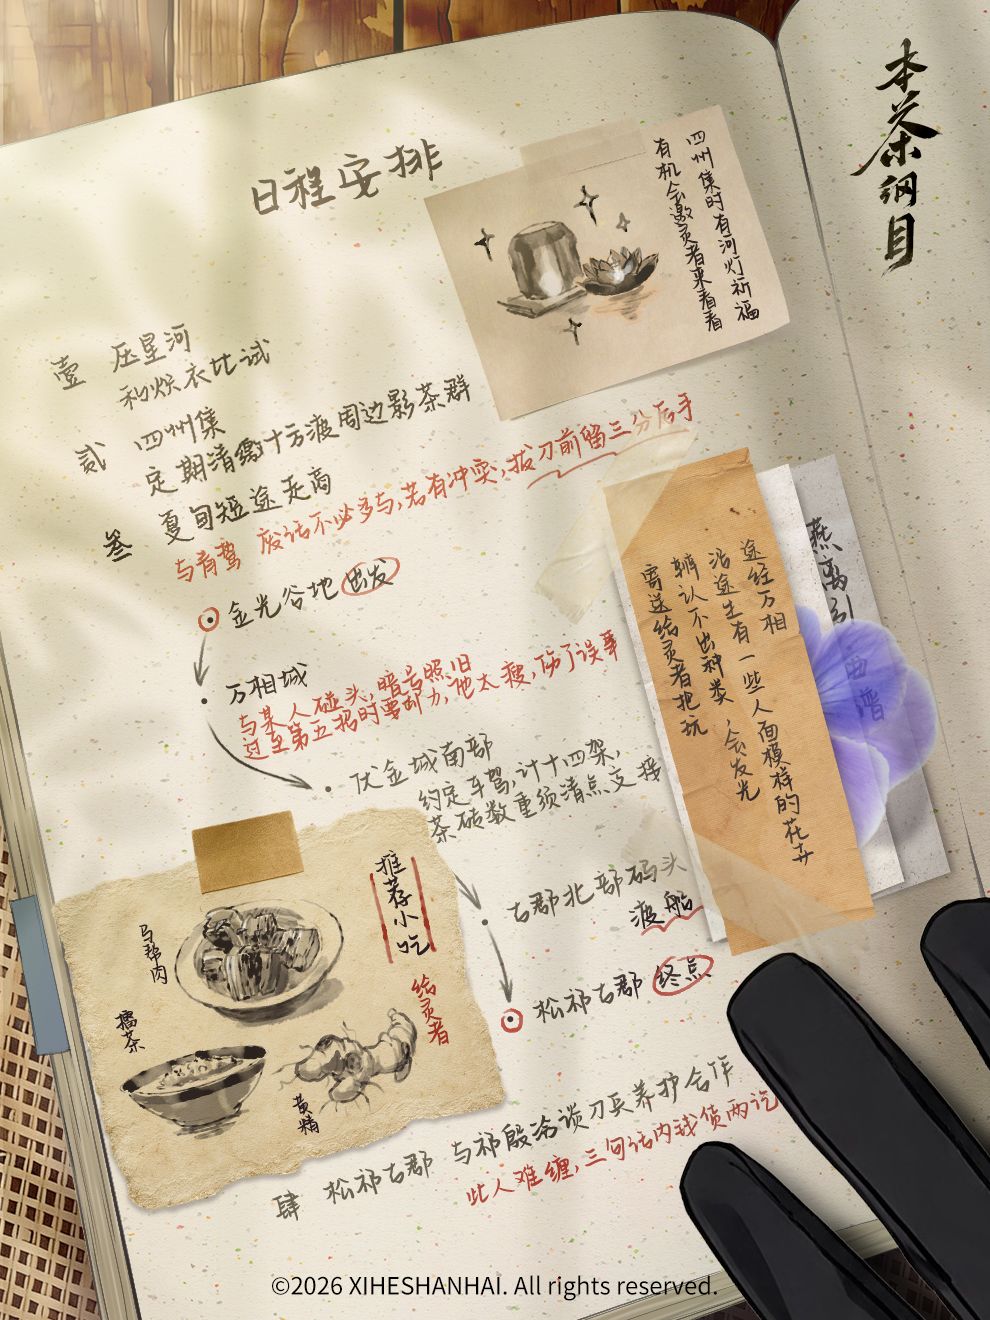 日程安排
四州集时有河灯祈福
有机会邀灵者来看看
本茶纲目
壹 压星河
和炽衣比试
贰 四州集
定期清缴十方渡周边影茶群
叁 夏旬短途走商
与肴鹫 废话不必多与,若有冲突,拔刀前留三分后手
金光谷地 出发
万相城
与某人碰头,暗号照旧
过至第五招时要卸力,他太瘦,伤了误事
伏金城南部
约定车驾,计十四架,
茶砖数重须清点交接
古郡北部码头
渡船
松祁古郡 终点
途经万相
沿途生有一些人面模样的花卉
辨认不出种类,会发光
寄送给灵者把玩
燕离引
推荐小吃
给灵者
马帮肉
擂茶
黄精
肆 松祁古郡 与祁殷洽谈刀兵养护合作
此人难缠,三句话内钱货两讫
©2026 XIHESHANHAI. All rights reserved.